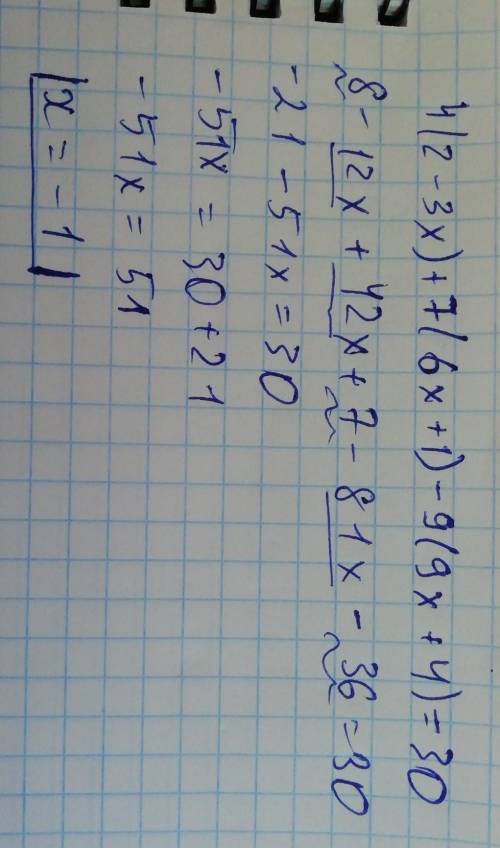 4(2-3x)+7(6x+1)-9(9x+4)=30
8-12x+42x+7-81x-36=30
-21-51x=30
-51x=30+21
-51x=51
x=-1